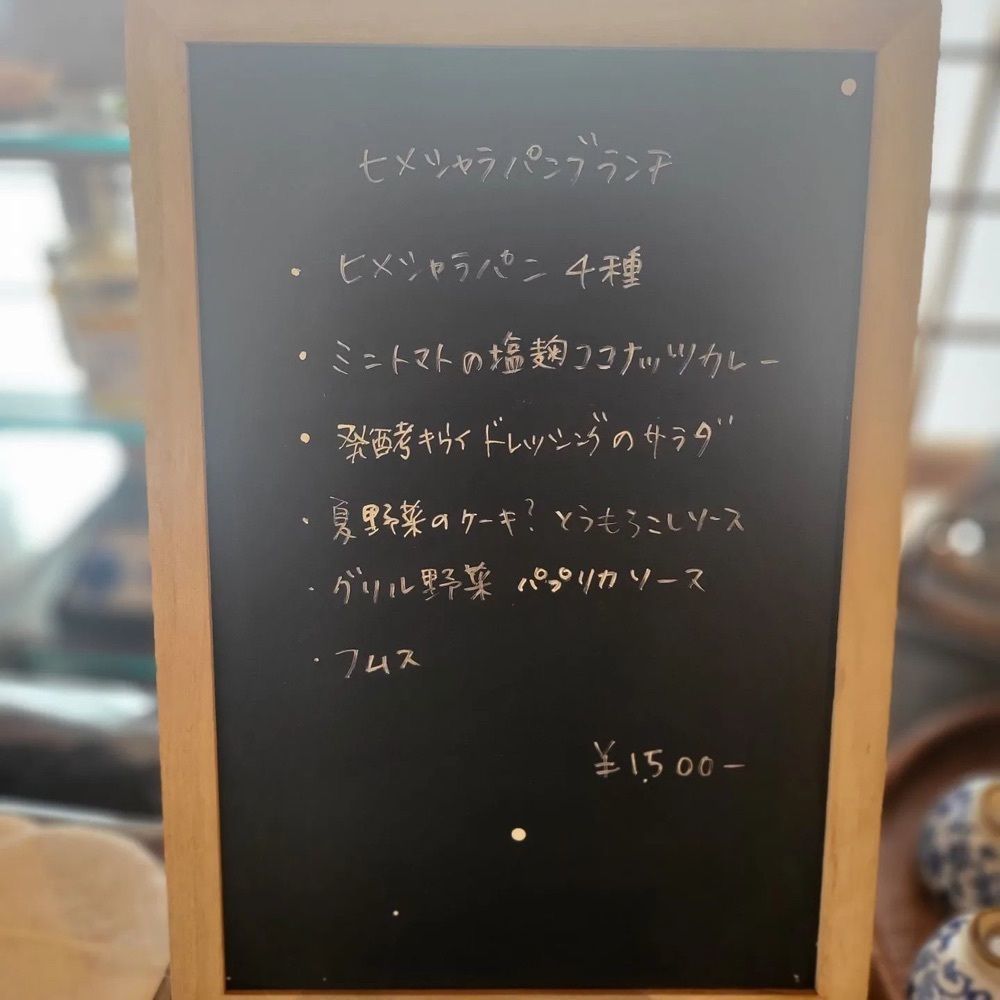 ヒメシャラパンブランチ
・ヒメシャラパン 4種
・ミニトマトの塩麹ココナッツカレー
・発酵キウイドレッシングのサラダ
・夏野菜のケーキ？とうもろこしソース
・グリル野菜 パプリカソース
・フムス
¥1,500ー